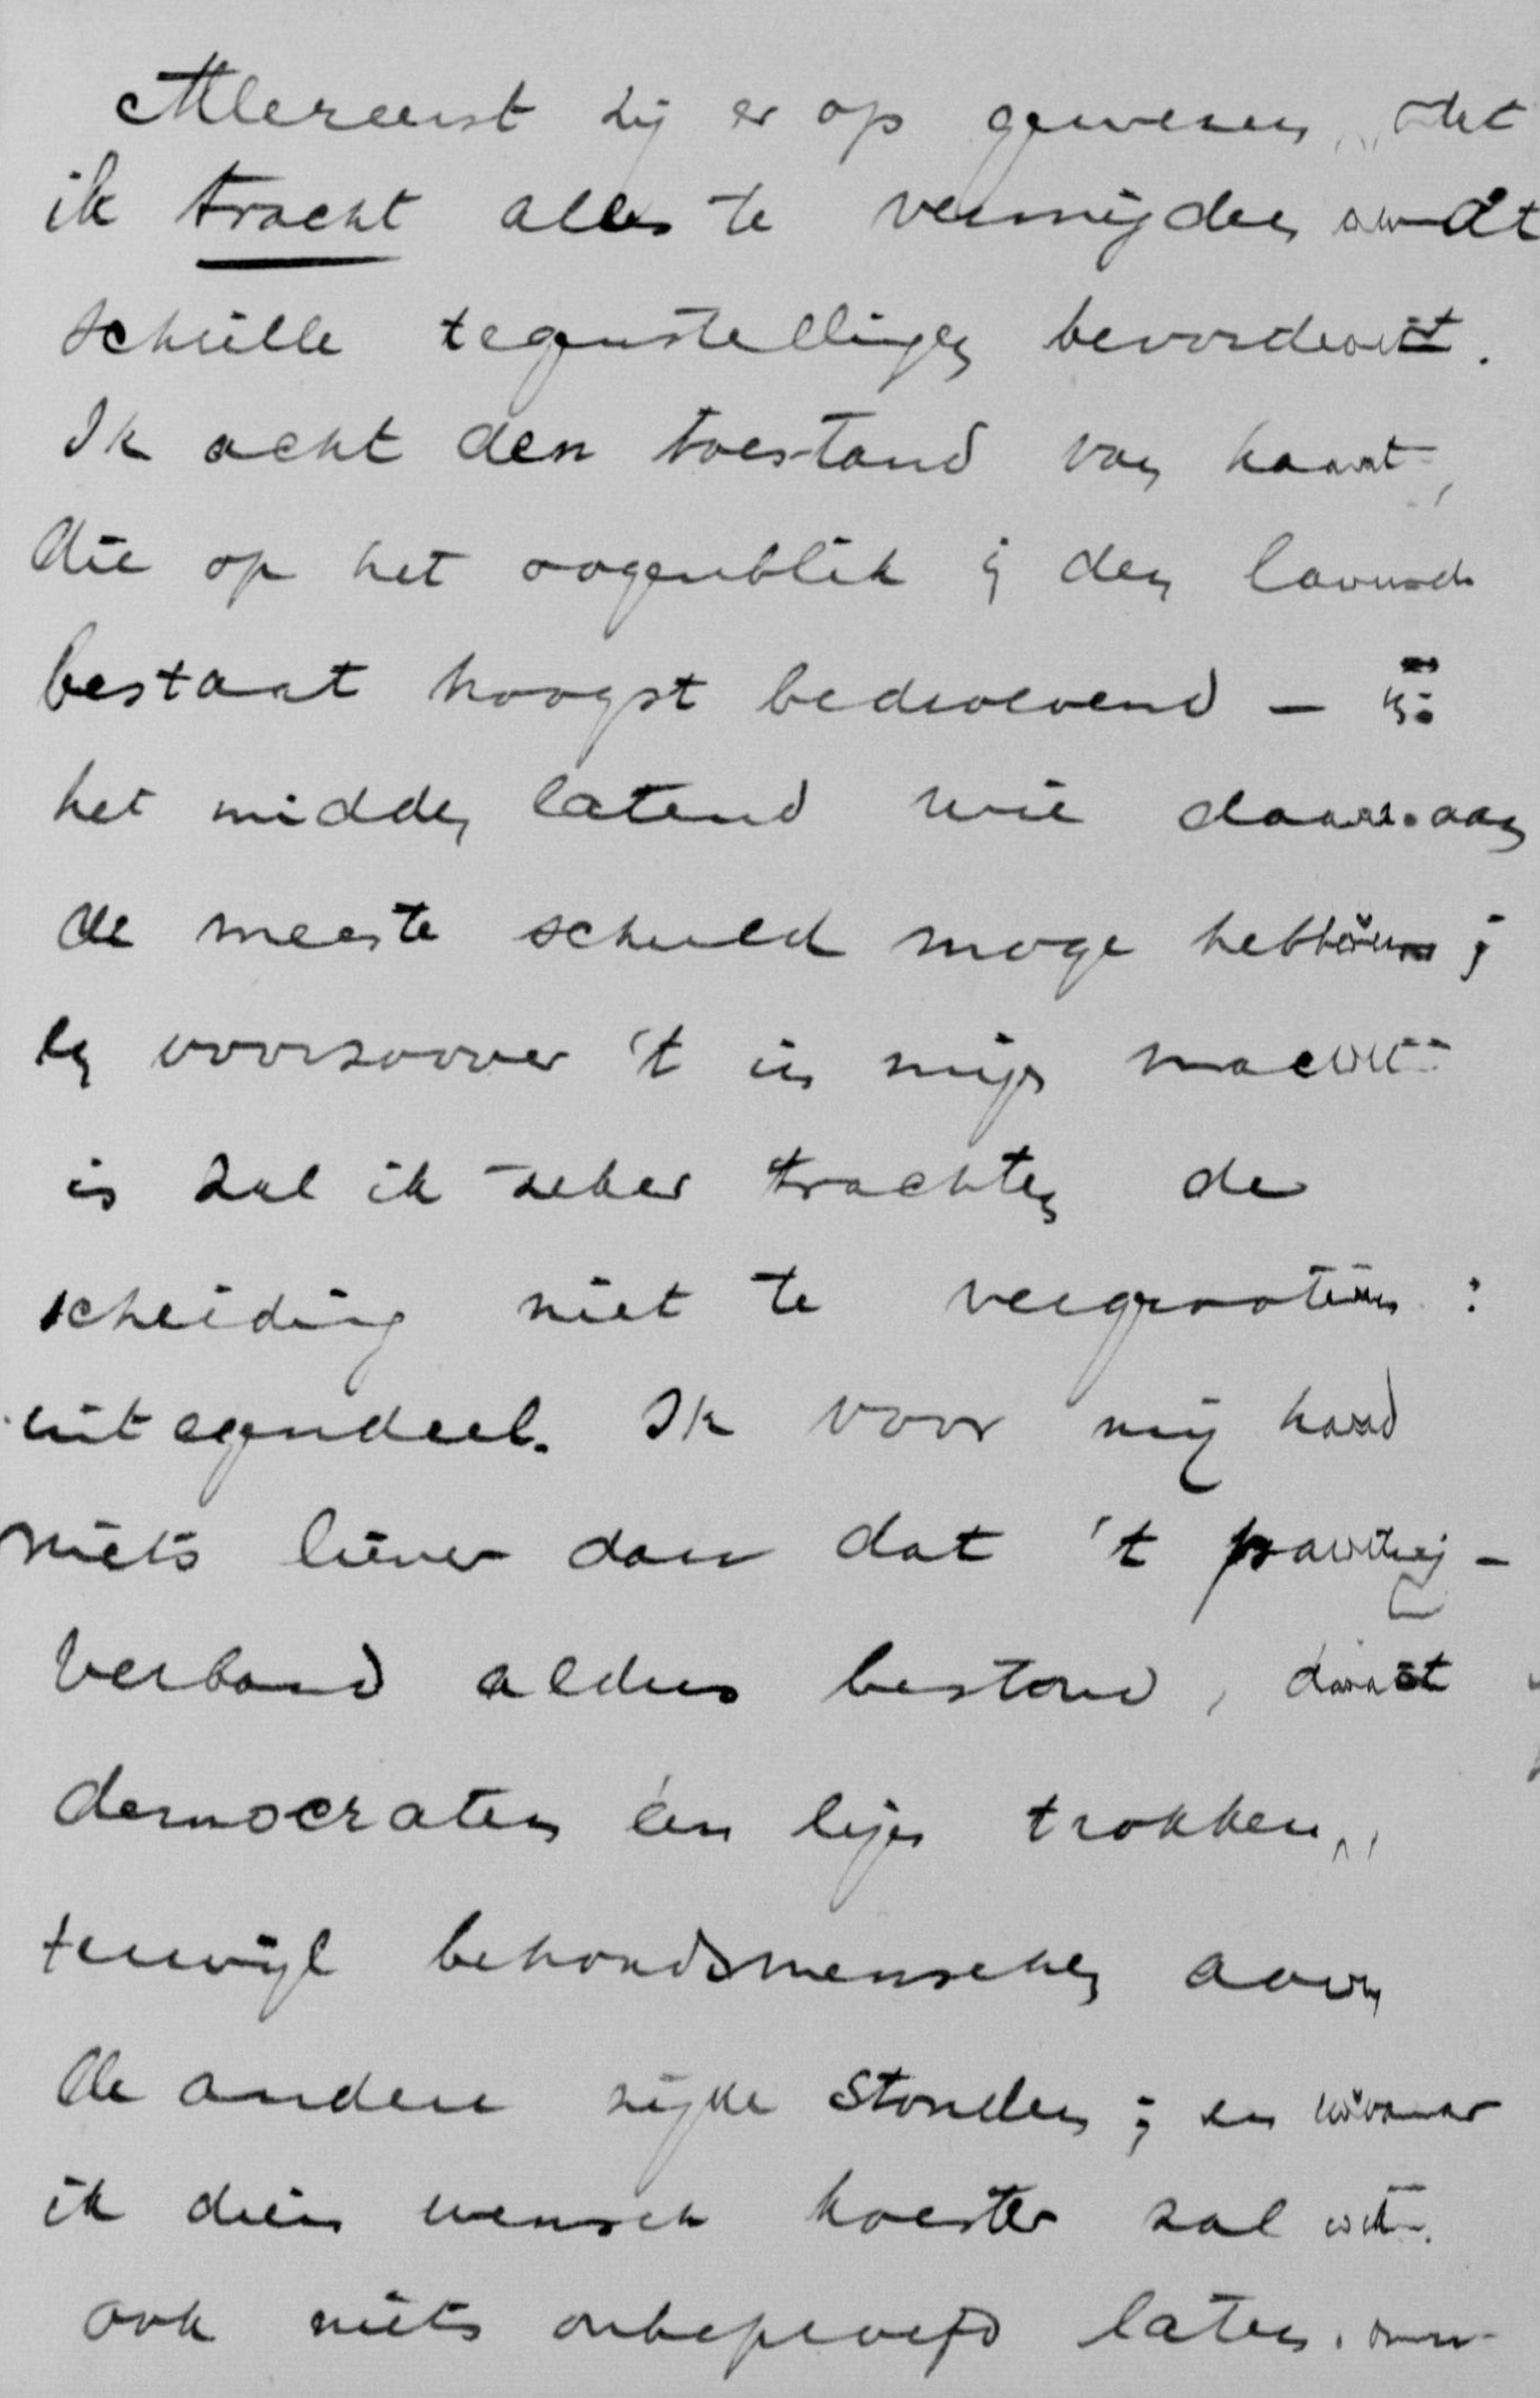 Allereerst zij er op gewezen, dat
ik tracht alles te vermijden wat
schrille tegenstellingen bevordert.
Ik acht den toestand van haat,
die op het oogenblik in den lande
bestaat hoogst bedroevend — in
het midden latend wie daaraan
de meeste schuld moge hebben;
en voorzoover 't in mijn macht
is zal ik zeker trachten de
scheiding niet te vergrooten:
integendeel. Ik voor mij had
niets liever dan dat 't partij-
verband aldus bestond, dat
democraten één lijn trokken,
terwijl behoudsmenschen aan
de andere zijde stonden; en waar
ik dien wensch koester zal ik
ook niets onbeproefd laten om